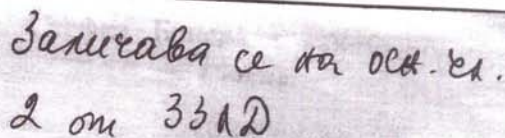 Заличава се на осн. чл.
2 от ЗЗЛД